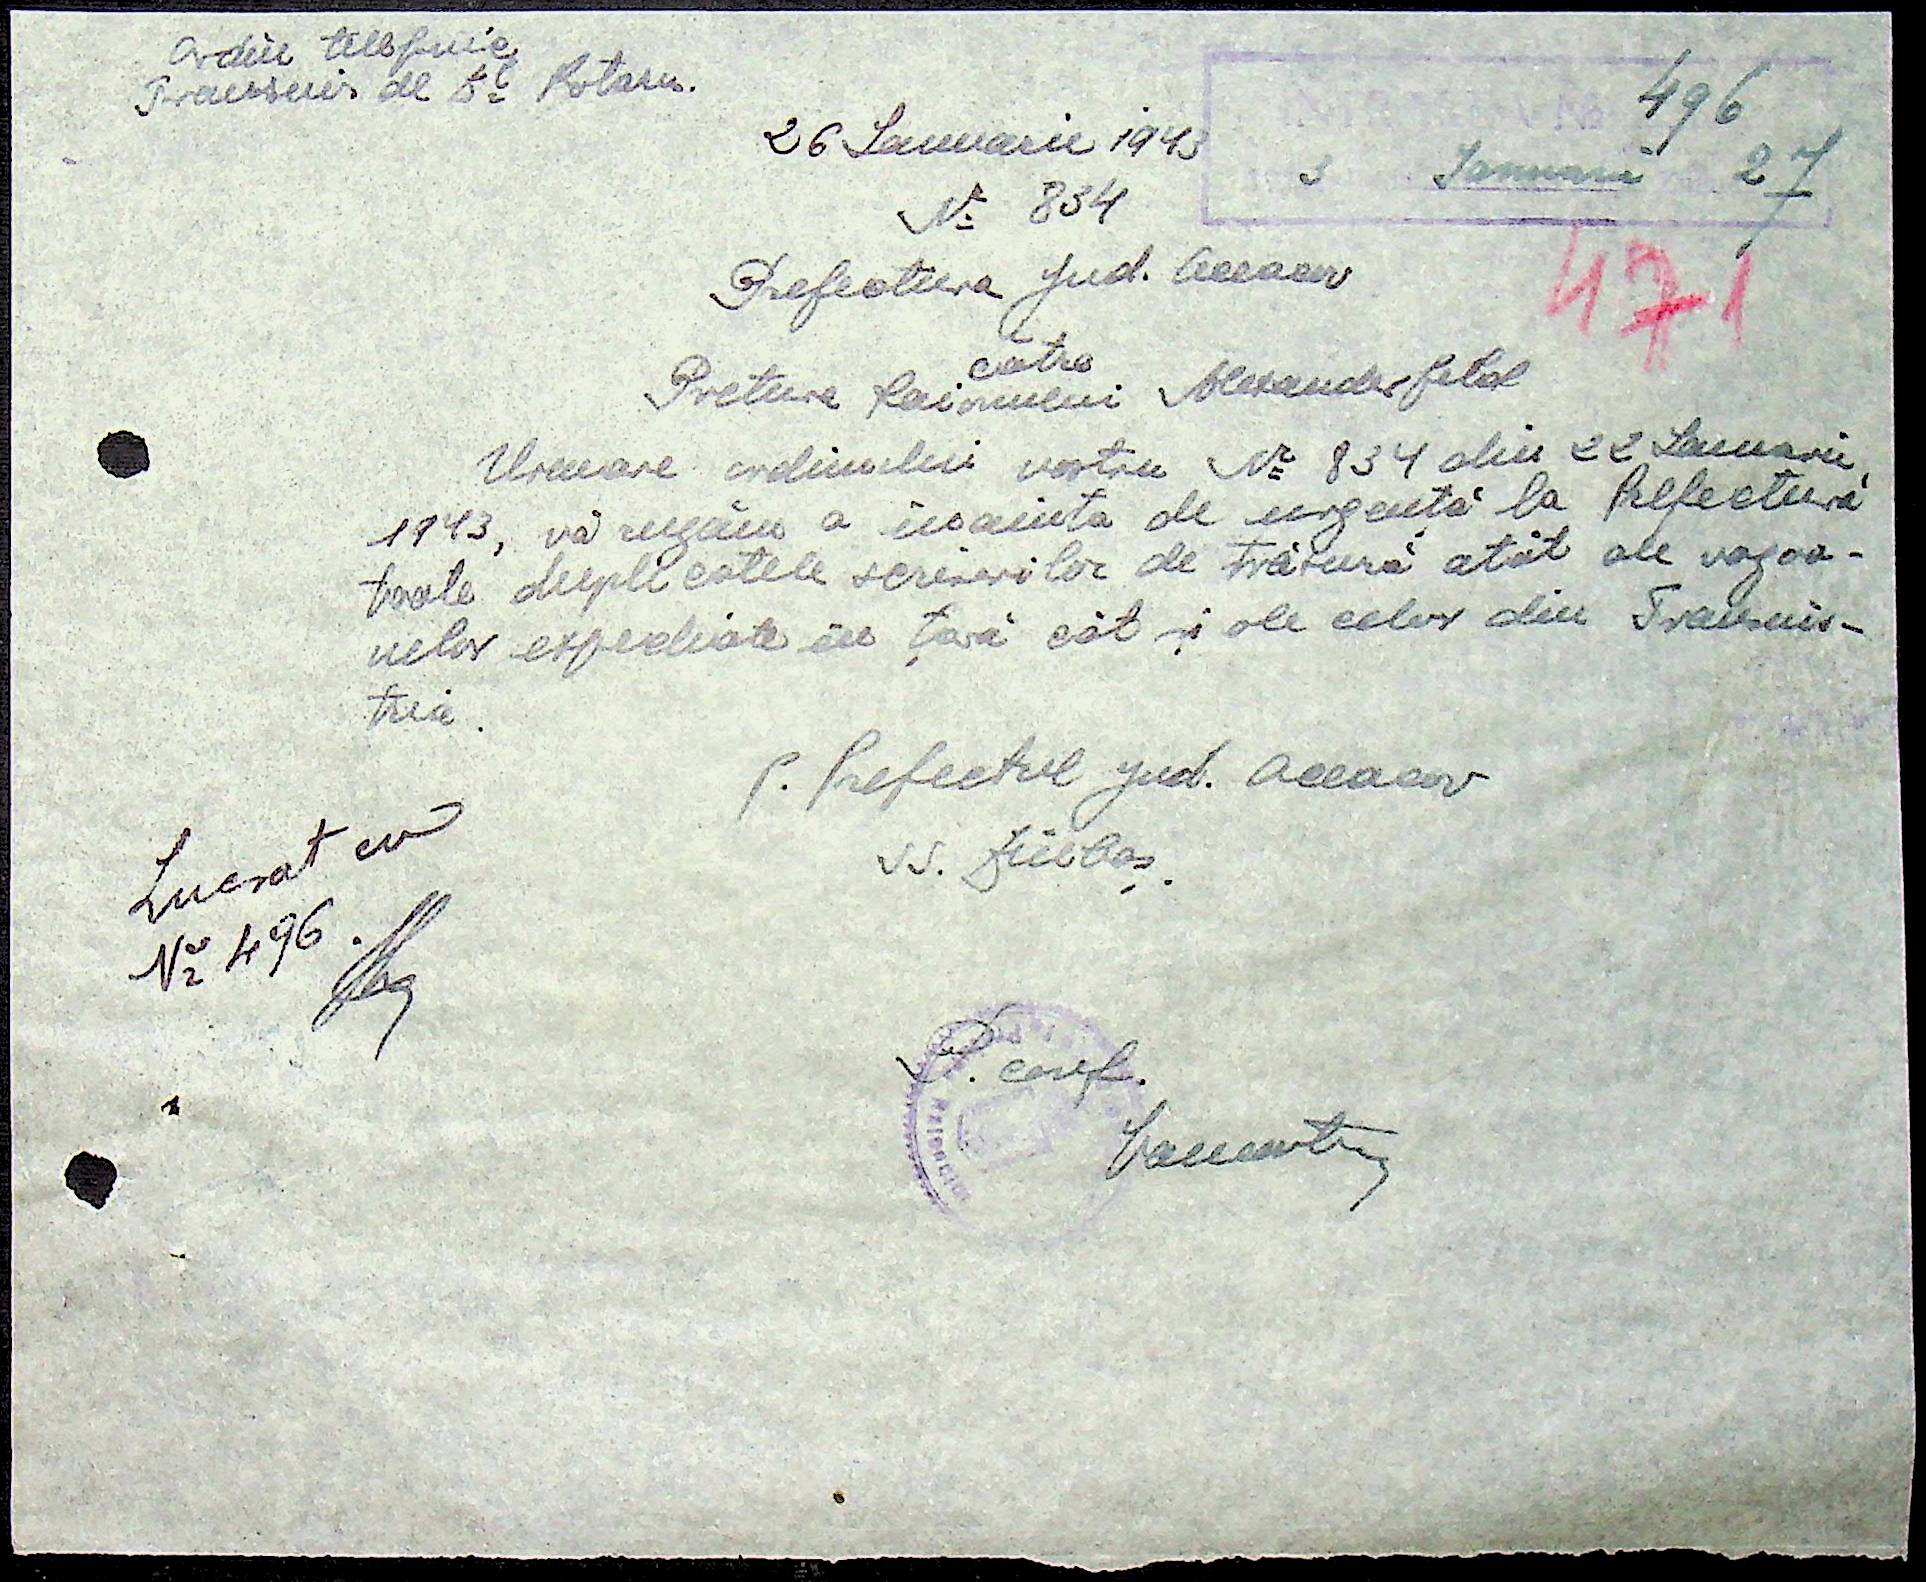 Ordin telefonic
Transmis de Dl Rotaru.
496
26 Ianuarie 1943
3 Ianuarie 27
No 834
471
Prefectura Jud. Oceacov
către
Pretura Raionului Alexanderfeld
Urmare ordinului nostru No 834 din 22 Ianuarie
1943, vă rugăm a înainta de urgență la Prefectură
toate duplicatele scrisorilor de trăsură atât ale vagoa-
nelor expediate în țară cât și ale celor din Transnis-
tria.
P. Prefectul jud. Oceacov
ss.
Lucrat cu
No 496.
P. conf.
Raionului